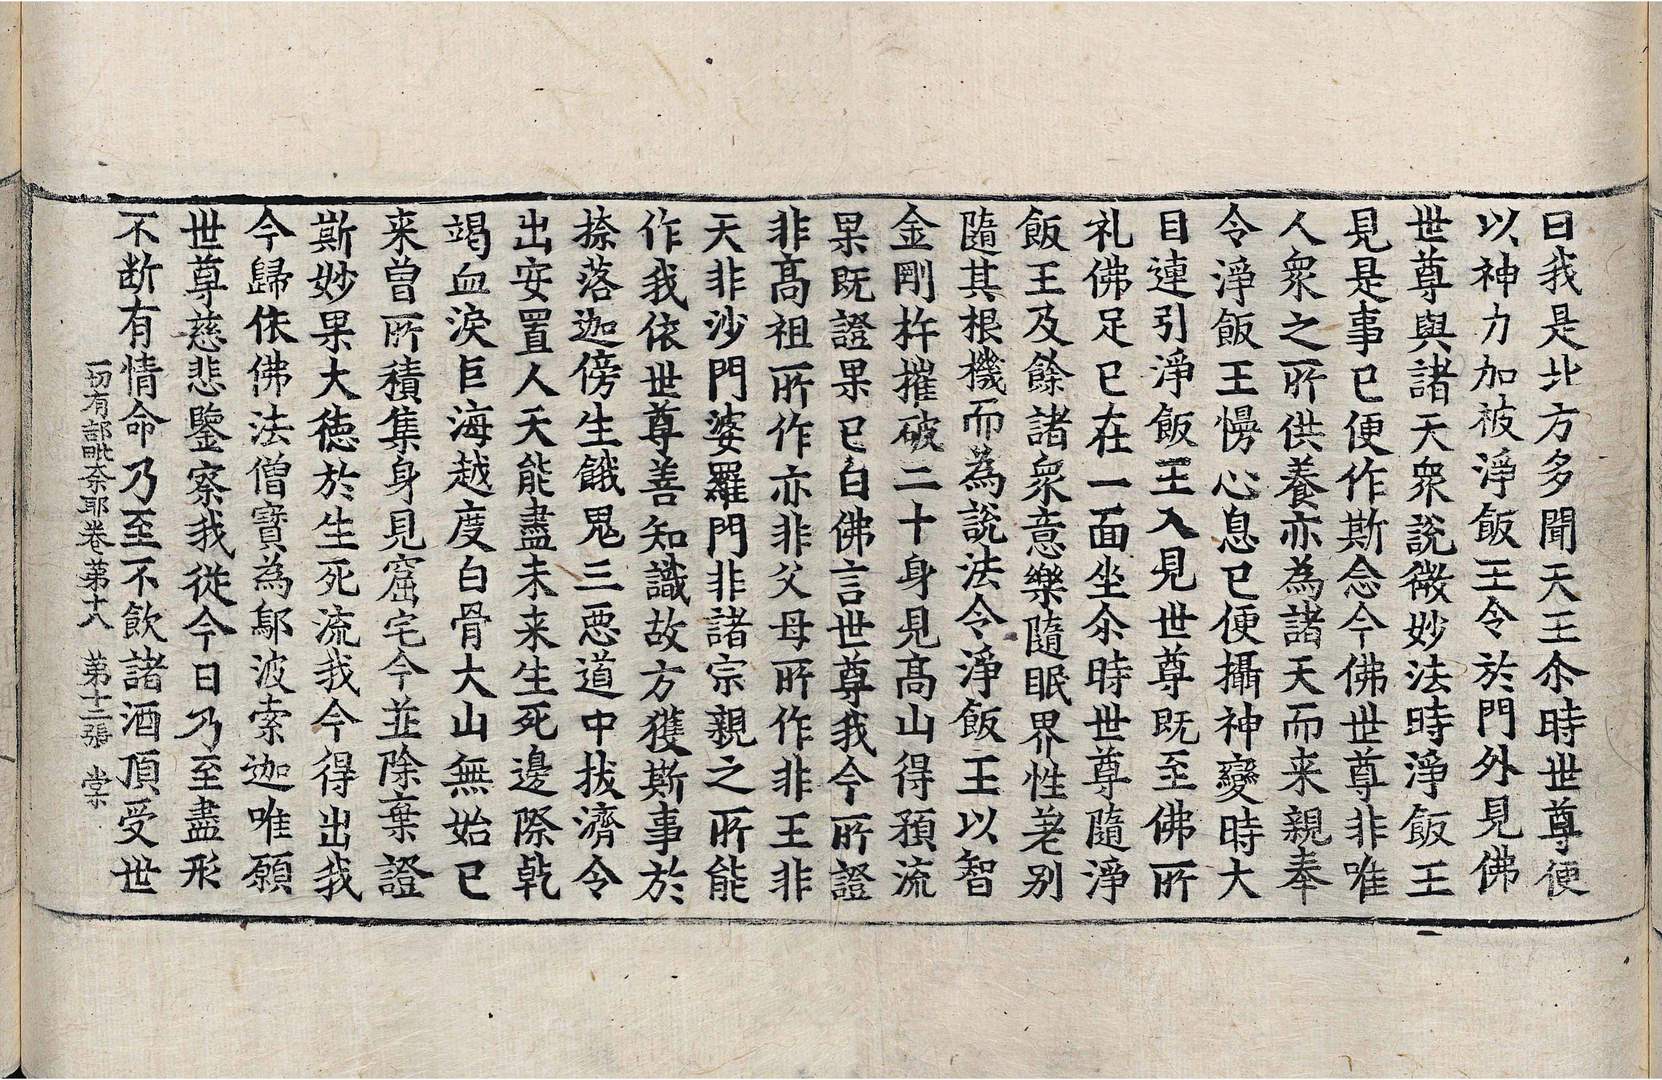 曰我是北方多聞天王尒時世尊便
以神力加被淨飯王令於門外見佛
世尊與諸天衆說微妙法時淨飯王
見是事已便作斯念今佛世尊非唯
人衆之所供養亦為諸天而来親奉
令淨飯王慢心息已便攝神變時大
目連引淨飯王入見世尊既至佛所
礼佛足已在一面坐尒時世尊隨淨
飯王及餘諸衆意樂隨眠界性差别
隨其根機而為說法令淨飯王以智
金剛杵摧破二十身見高山得預流
果既證果已白佛言世尊我今所證
非高祖所作亦非父母所作非王非
天非沙門婆羅門非諸宗親之所能
作我依世尊善知識故方獲斯事於
捺落迦傍生餓鬼三惡道中拔濟令
出安置人天能盡未来生死邊際乾
竭血淚巨海越度白骨大山無始已
来曾所積集身見窟宅今並除棄證
斯妙果大徳於生死流我今得出我
今歸依佛法僧寶為鄔波索迦唯願
世尊慈悲鑒察我從今日乃至盡形
不断有情命乃至不飲諸酒頂受世
一切有部毗奈耶卷苐十八 苐十二張 棠